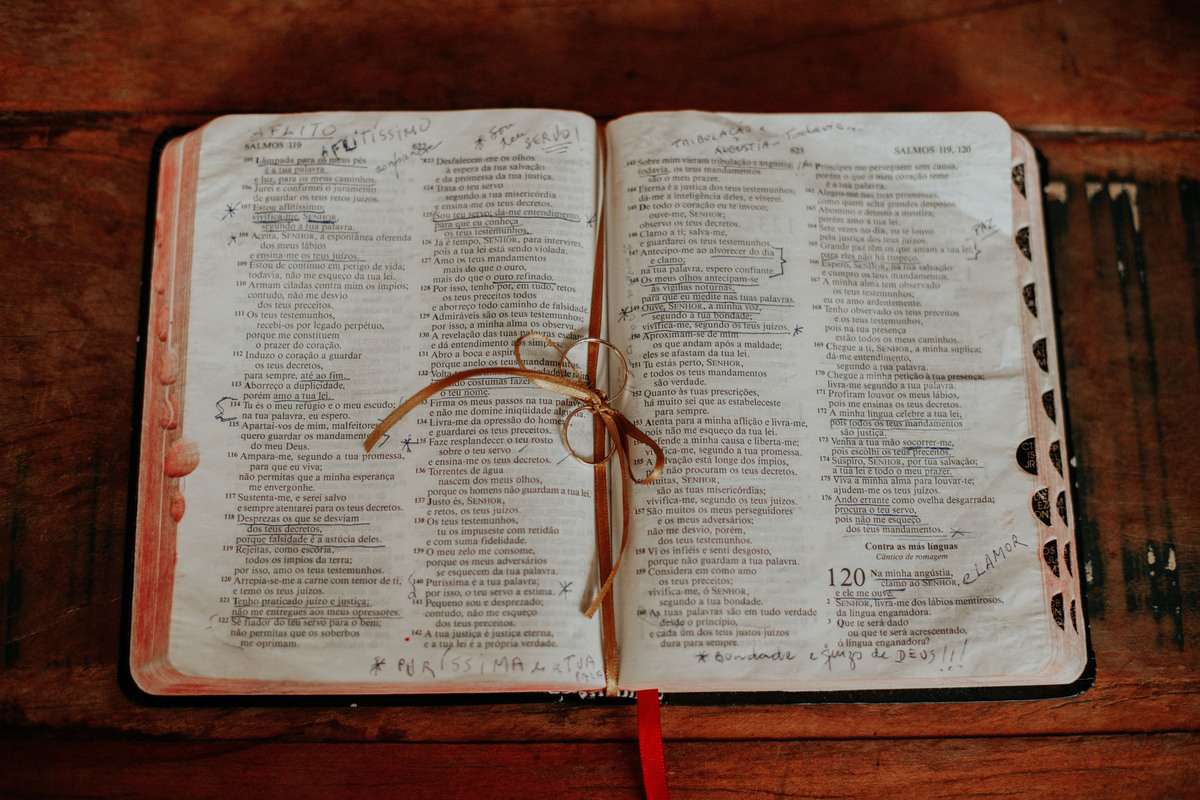 AFLITO
AFLITÍSSIMO
SALMOS 119
105 Lâmpada para os meus pés
é a tua palavra
e luz, para os meus caminhos.
106 Jurei e confirmei o juramento
de guardar os teus retos juízos.
107 Estou aflitíssimo;
vivifica-me, SENHOR,
segundo a tua palavra.
108 Aceita, SENHOR, a espontânea oferenda
dos meus lábios
e ensina-me os teus juízos.
109 Estou de contínuo em perigo de vida;
todavia, não me esqueço da tua lei.
110 Armam ciladas contra mim os ímpios;
contudo, não me desvio
dos teus preceitos.
111 Os teus testemunhos,
recebi-os por legado perpétuo,
porque me constituem
o prazer do coração.
112 Induzo o coração a guardar
os teus decretos,
para sempre, até ao fim.
113 Aborreço a duplicidade,
porém amo a tua lei.
114 Tu és o meu refúgio e o meu escudo;
na tua palavra, eu espero.
115 Apartai-vos de mim, malfeitores
quero guardar os mandamentos
do meu Deus.
116 Ampara-me, segundo a tua promessa,
para que eu viva;
não permitas que a minha esperança
me envergonhe.
117 Sustenta-me, e serei salvo
e sempre atentarei para os teus decretos.
118 Desprezas os que se desviam
dos teus decretos,
porque falsidade é a astúcia deles.
119 Rejeitas, como escória,
todos os ímpios da terra;
por isso, amo os teus testemunhos.
120 Arrepia-se-me a carne com temor de ti,
e temo os teus juízos.
121 Tenho praticado juízo e justiça;
não me entregues aos meus opressores.
122 Sê fiador do teu servo para o bem;
não permitas que os soberbos
me oprimam.
* Sou
teu SERVO!
123 Desfalecem-me os olhos
à espera da tua salvação
e da promessa da tua justiça.
124 Trata o teu servo
segundo a tua misericórdia
e ensina-me os teus decretos.
125 Sou teu servo; dá-me entendimento,
para que eu conheça
os teus testemunhos.
126 Já é tempo, SENHOR, para intervires,
pois a tua lei está sendo violada.
127 Amo os teus mandamentos
mais do que o ouro,
mais do que o ouro refinado.
128 Por isso, tenho por, em tudo, retos
os teus preceitos todos
e aborreço todo caminho de falsidade.
129 Admiráveis são os teus testemunhos;
por isso, a minha alma os observa.
130 A revelação das tuas palavras esclarece
e dá entendimento aos simples.
131 Abro a boca e aspiro,
porque anelo os teus mandamentos.
132 Volta-te
costumas fazer
o teu nome.
Firma os meus passos na tua palavra,
e não me domine iniqüidade alguma.
134 Livra-me da opressão do homem,
e guardarei os teus preceitos.
135 Faze resplandecer o teu rosto
sobre o teu servo
e ensina-me os teus decretos.
136 Torrentes de água
nascem dos meus olhos,
porque os homens não guardam a tua lei.
137 Justo és, SENHOR,
e retos, os teus juízos.
138 Os teus testemunhos,
tu os impuseste com retidão
e com suma fidelidade.
139 O meu zelo me consome,
porque os meus adversários
se esquecem da tua palavra.
140 Puríssima é a tua palavra;
por isso, o teu servo a estima.
141 Pequeno sou e desprezado;
contudo, não me esqueço
dos teus preceitos.
142 A tua justiça é justiça eterna,
e a tua lei é a própria verdade.
* PURÍSSIMA é a TUA
PALA
TRIBULAÇÃO e
ANGÚSTIA
Todavia...
623
SALMOS 119, 120
143 Sobre mim vieram tribulação e angústia;
todavia, os teus mandamentos
são o meu prazer.
144 Eterna é a justiça dos teus testemunhos;
dá-me a inteligência deles, e viverei.
145 De todo o coração eu te invoco;
ouve-me, SENHOR;
observo os teus decretos.
146 Clamo a ti; salva-me,
e guardarei os teus testemunhos.
147 Antecipo-me ao alvorecer do dia
e clamo;
na tua palavra, espero confiante.
148 Os meus olhos antecipam-se
às vigílias noturnas,
para que eu medite nas tuas palavras.
149 Ouve, SENHOR, a minha voz,
segundo a tua bondade;
vivifica-me, segundo os teus juízos.
150 Aproximam-se de mim
os que andam após a maldade;
eles se afastam da tua lei.
151 Tu estás perto, SENHOR,
e todos os teus mandamentos
são verdade.
152 Quanto às tuas prescrições,
há muito sei que as estabeleceste
para sempre.
153 Atenta para a minha aflição e livra-me,
pois não me esqueço da tua lei.
Defende a minha causa e liberta-me;
vivifica-me, segundo a tua promessa.
155 A salvação está longe dos ímpios,
não procuram os teus decretos.
Muitas, SENHOR,
são as tuas misericórdias;
vivifica-me, segundo os teus juízos.
157 São muitos os meus perseguidores
e os meus adversários;
não me desvio, porém,
dos teus testemunhos.
158 Vi os infiéis e senti desgosto,
porque não guardam a tua palavra.
159 Considera em como amo
os teus preceitos;
vivifica-me, ó SENHOR,
segundo a tua bondade.
160 As tuas palavras são em tudo verdade
desde o princípio,
e cada um dos teus justos juízos
dura para sempre.
Príncipes me perseguem sem causa,
porém o que o meu coração teme
é a tua palavra.
162 Alegro-me nas tuas promessas,
como quem acha grandes despojos.
163 Abomino e detesto a mentira;
porém amo a tua lei.
164 Sete vezes no dia, eu te louvo
pela justiça dos teus juízos.
165 Grande paz têm os que amam a tua lei;
para eles não há tropeço.
PAZ
166 Espero, SENHOR, na tua salvação
e cumpro os teus mandamentos.
167 A minha alma tem observado
os teus testemunhos;
eu os amo ardentemente.
168 Tenho observado os teus preceitos
e os teus testemunhos,
pois na tua presença
estão todos os meus caminhos.
169 Chegue a ti, SENHOR, a minha súplica;
dá-me entendimento,
segundo a tua palavra.
170 Chegue a minha petição à tua presença;
livra-me segundo a tua palavra.
171 Profiram louvor os meus lábios,
pois me ensinas os teus decretos.
172 A minha língua celebre a tua lei,
pois todos os teus mandamentos
são justiça.
173 Venha a tua mão socorrer-me,
pois escolhi os teus preceitos.
174 Suspiro, SENHOR, por tua salvação;
a tua lei é todo o meu prazer.
175 Viva a minha alma para louvar-te;
ajudem-me os teus juízos.
176 Ando errante como ovelha desgarrada;
procura o teu servo,
pois não me esqueço
dos teus mandamentos.
Contra as más línguas
Cântico de romagem
120 Na minha angústia,
clamo ao SENHOR,
e ele me ouve.
CLAMOR
2 SENHOR, livra-me dos lábios mentirosos,
da língua enganadora.
3 Que te será dado
ou que te será acrescentado,
ó língua enganadora?
* Bondade e juízo de DEUS!!!